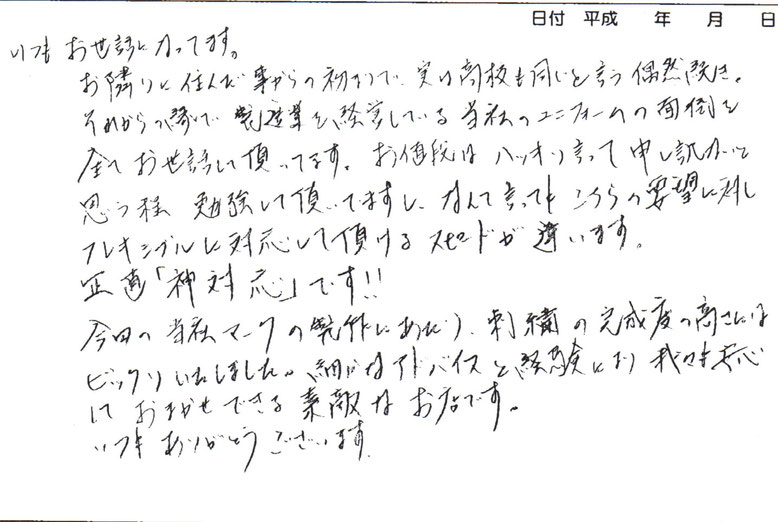 日付 平成 年 月 日
いつも お世話になってます。
お隣りに住んだ事からの初まりで、実は高校も同じと言う偶然続き。
それからの縁で、製造業を経営している当社のユニフォームの面倒を
全て お世話して頂ってます。お値段は ハッキリ言って 申し訳ないと
思う程 勉強して頂いてますし、なんて言っても こちらの要望に対し
フレキシブルに対応して頂ける スピードが 違います。
正直「神対応」です!!
今回の当社マークの製作にあたり、刺繍の完成度の高さには
ビックリいたしました。細かなアドバイスと経験により 我々も安心
して おまかせできる 素敵な お店です。
いつも ありがとう ございます.